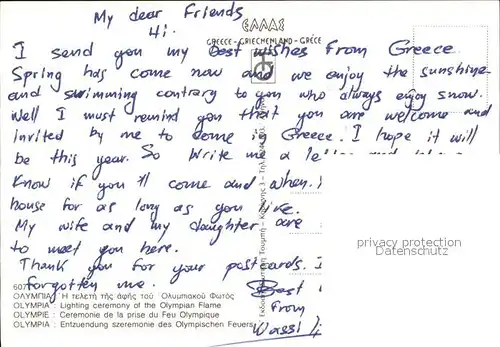 My dear Friends
Hi.
ΕΛΛΑΣ
GREECE - GRIECHENLAND - GRÈCE
I send you my best wishes from Greece
Spring has come now and we enjoy the sunshine
and swimming contrary to you who always enjoy snow.
Well I must remind you that you are welcome and
invited by me to come in Greece. I hope it will
be this year. So write me a letter and
know if you 'll come and when. I
house for as long as you like.
My wife and my daughter are
to meet you here.
Thank you for your postcards. I
forgotten me.
Best
From
Wassi
privacy protection
ansichtskarten-center.de
ΟΛΥΜΠΙΑ : Ἡ τελετή τῆς ἀφῆς τοῦ Ὀλυμπιακοῦ Φωτός
OLYMPIA : Lighting ceremony of the Olympian Flame
OLYMPIE : Ceremonie de la prise du Feu Olympique
OLYMPIA : Entzuendung szeremonie des Olympischen Feuers